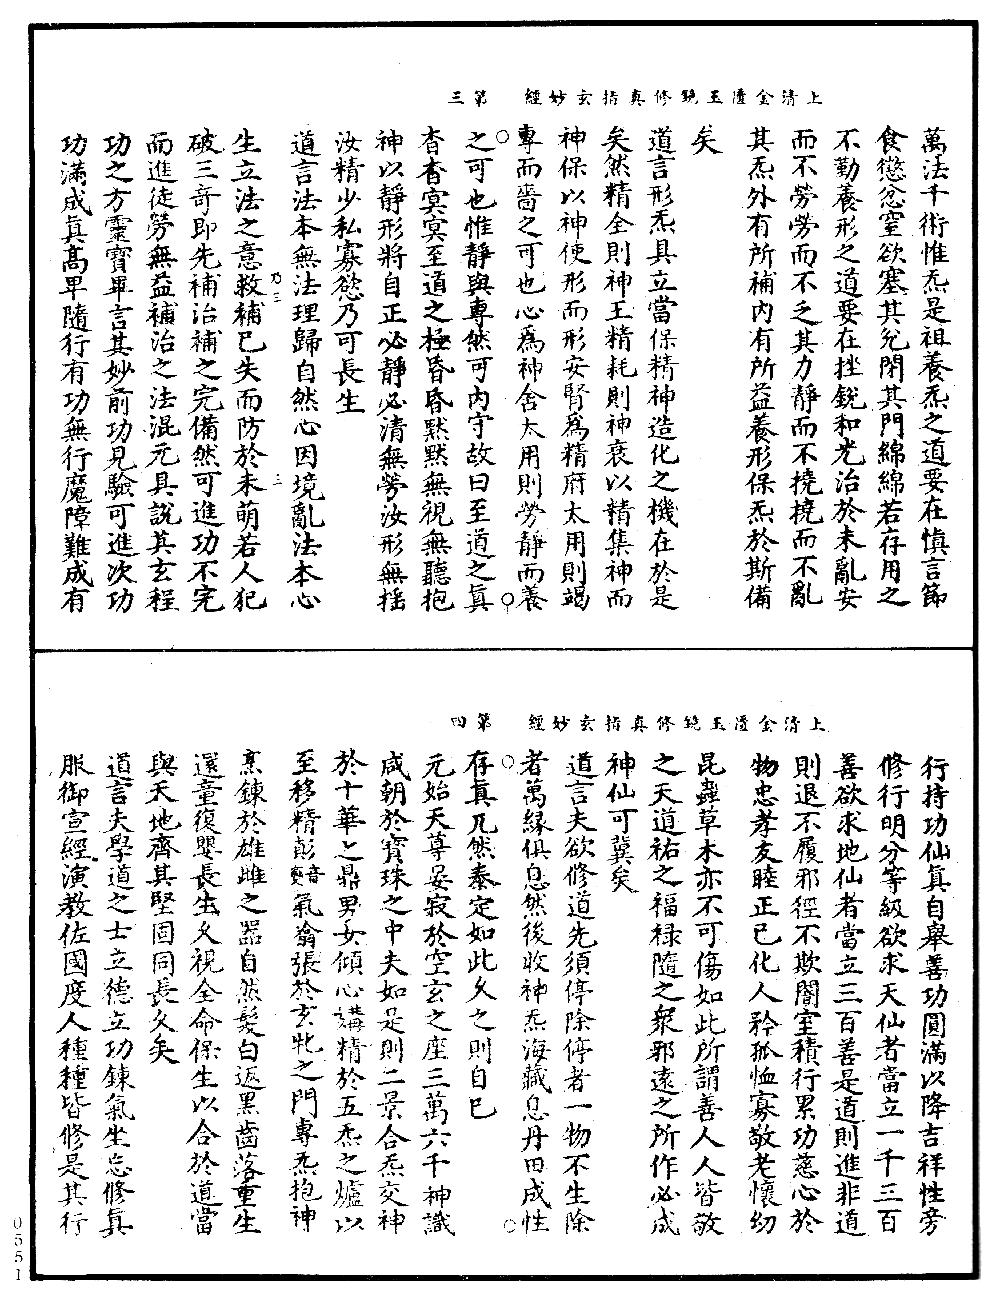 上清金匱玉鏡修真指玄妙經　第三
萬法千術惟炁是祖養炁之道要在慎言節
食懲忿窒欲塞其兌閉其門綿綿若存用之
不勤養形之道要在挫銳和光治於未亂安
而不勞勞而不乏其力靜而不撓撓而不亂
其炁外有所補內有所益養形保炁於斯備
矣
道言形炁具立當保精神造化之機在於是
矣然精全則神王精耗則神衰以精集神而
神保以神使形而形安腎為精府太用則竭
專而嗇之可也心為神舍太用則勞靜而養
之可也惟靜與專然可內守故曰至道之真
杳杳冥冥至道之極昏昏默默無視無聽抱
神以靜形將自正必靜必清無勞汝形無搖
汝精少私寡慾乃可長生
道言法本無法理歸自然心因境亂法本心
乃三　三
生立法之意救補已失而防於未萌若人犯
破三奇即先補治補之完備然可進功不完
而進徒勞無益補治之法混元具說其玄程
功之方靈寶畢言其妙前功見驗可進次功
功滿成真高卑隨行有功無行魔障難成有
上清金匱玉鏡修真指玄妙經　第四
行持功仙真自舉善功圓滿以降吉祥性旁
修行明分等級欲求天仙者當立一千三百
善欲求地仙者當立三百善是道則進非道
則退不履邪徑不欺闇室積行累功慈心於
物忠孝友睦正已化人矜孤恤寡敬老懷幼
昆蟲草木亦不可傷如此所謂善人人皆敬
之天道祐之福祿隨之衆邪遠之所作必成
神仙可冀矣
道言夫欲修道先須停除停者一物不生除
者萬緣俱息然後收神炁海藏息丹田成性
存真兀然泰定如此久之則自已
元始天尊晏寂於空玄之座三萬六千神識
咸朝於寶珠之中夫如是則二景合炁交神
於十華之鼎男女傾心講精於五炁之爐以
至移精音變氣翕張於玄牝之門專炁抱神
烹鍊於雄雌之器自然髮白返黑齒落重生
還童復嬰長生久視全命保生以合於道當
與天地齊其堅固同長久矣
道言夫學道之士立德立功鍊氣坐忘修真
服御宣經演教佐國度人種種皆修是其行
0551